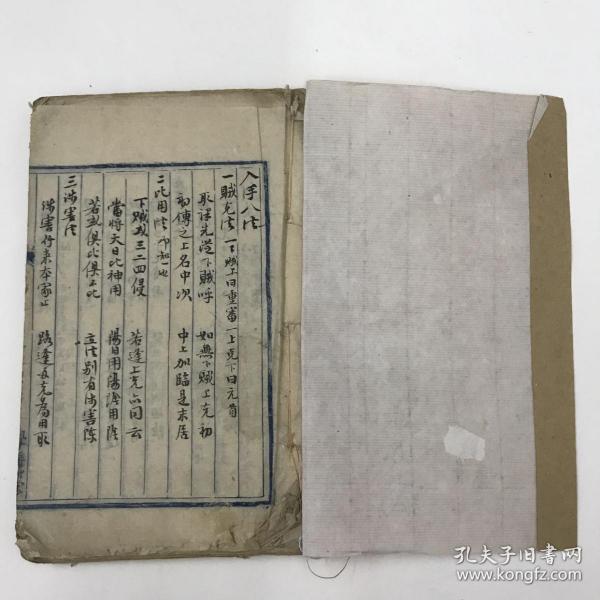 入手八法
一賊尅法 一下賊上曰重審 一上克下曰元首
取課先從下賊呼 如無下賊上克初
初傳之上名中次 中上加臨是末居
二比用法 即知一也
下賊或三二四侵 若逢上克亦同云
當將天日比神用 陽日用陽陰用陰
若或俱比俱不比 立法別有涉害陳
三涉害法
涉害行來本家止 路逢多克為用取
孔夫子旧书网
www.kongfz.com